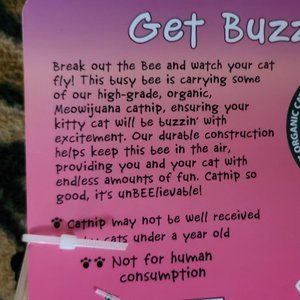 Get Buzz
Break out the Bee and watch your cat
fly! This busy bee is carrying some
of our high-grade, organic,
Meowijuana catnip, ensuring your
kitty cat will be buzzin' with
excitement. Our durable construction
helps keep this bee in the air,
providing you and your cat with
endless amounts of fun. Catnip so
good, it's unBEElievable!
Catnip may not be well received
by cats under a year old
Not for human
consumption
ORGANIC